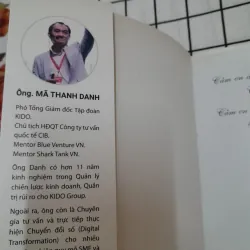 Ông. MÃ THANH DANH
Phó Tổng Giám đốc Tập đoàn
KIDO.
Chủ tịch HĐQT Công ty tư vấn
quốc tế CIB.
Mentor Blue Venture VN.
Mentor Shark Tank VN.
Ông Danh có hơn 11 năm
kinh nghiệm trong Quản lý
chiến lược kinh doanh, Quản
trị rủi ro cho KIDO Group.
Ngoài ra, ông còn là Chuyên
gia tư vấn và trực tiếp thực
hiện Chuyển đổi số (Digital
Transformation) cho nhiều
mô SME và
Cảm ơn
Cảm ơn